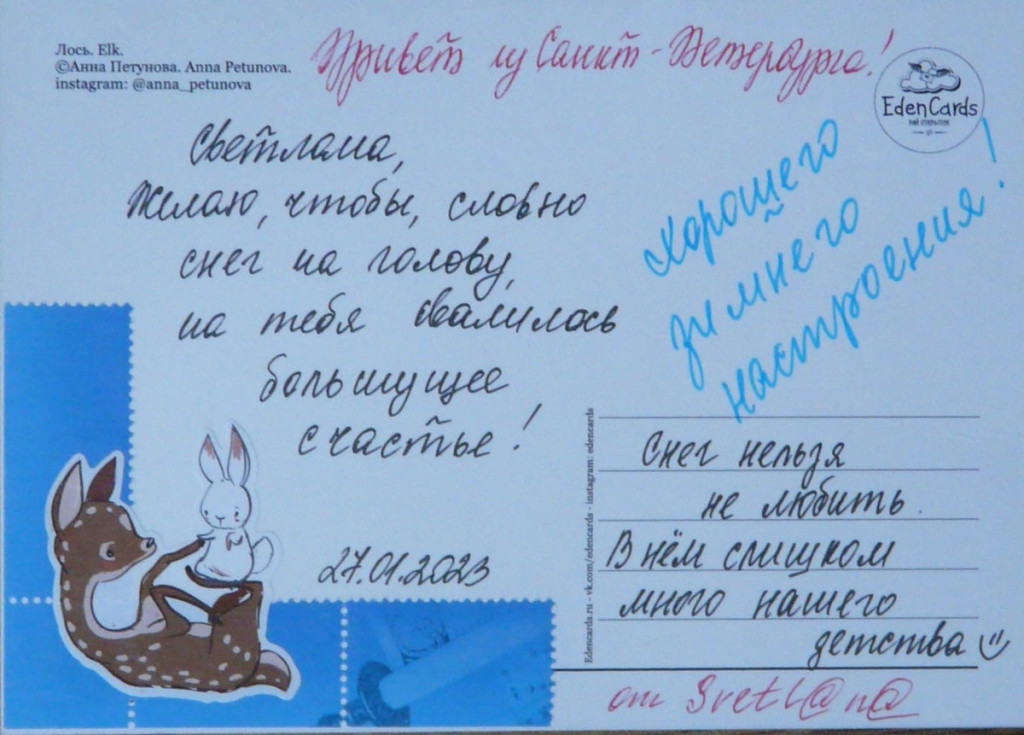 Лось. Elk.
©Анна Петунова. Anna Petunova.
instagram: @anna_petunova
Привет из Санкт-Петербурга!
EdenCards
РАЙ ОТКРЫТОК
Светлана,
Желаю, чтобы, словно
снег на голову,
на тебя свалилось
большущее
счастье!
Хорошего
зимнего
настроения!
27.01.2023
Edencards.ru - vk.com/edencards - instagram: edencards
Снег нельзя
не любить.
В нём слишком
много нашего
детства
от Svetl@n@